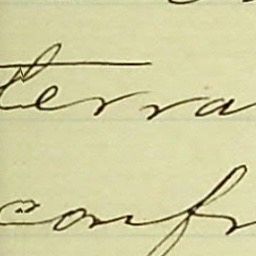 terra
confr